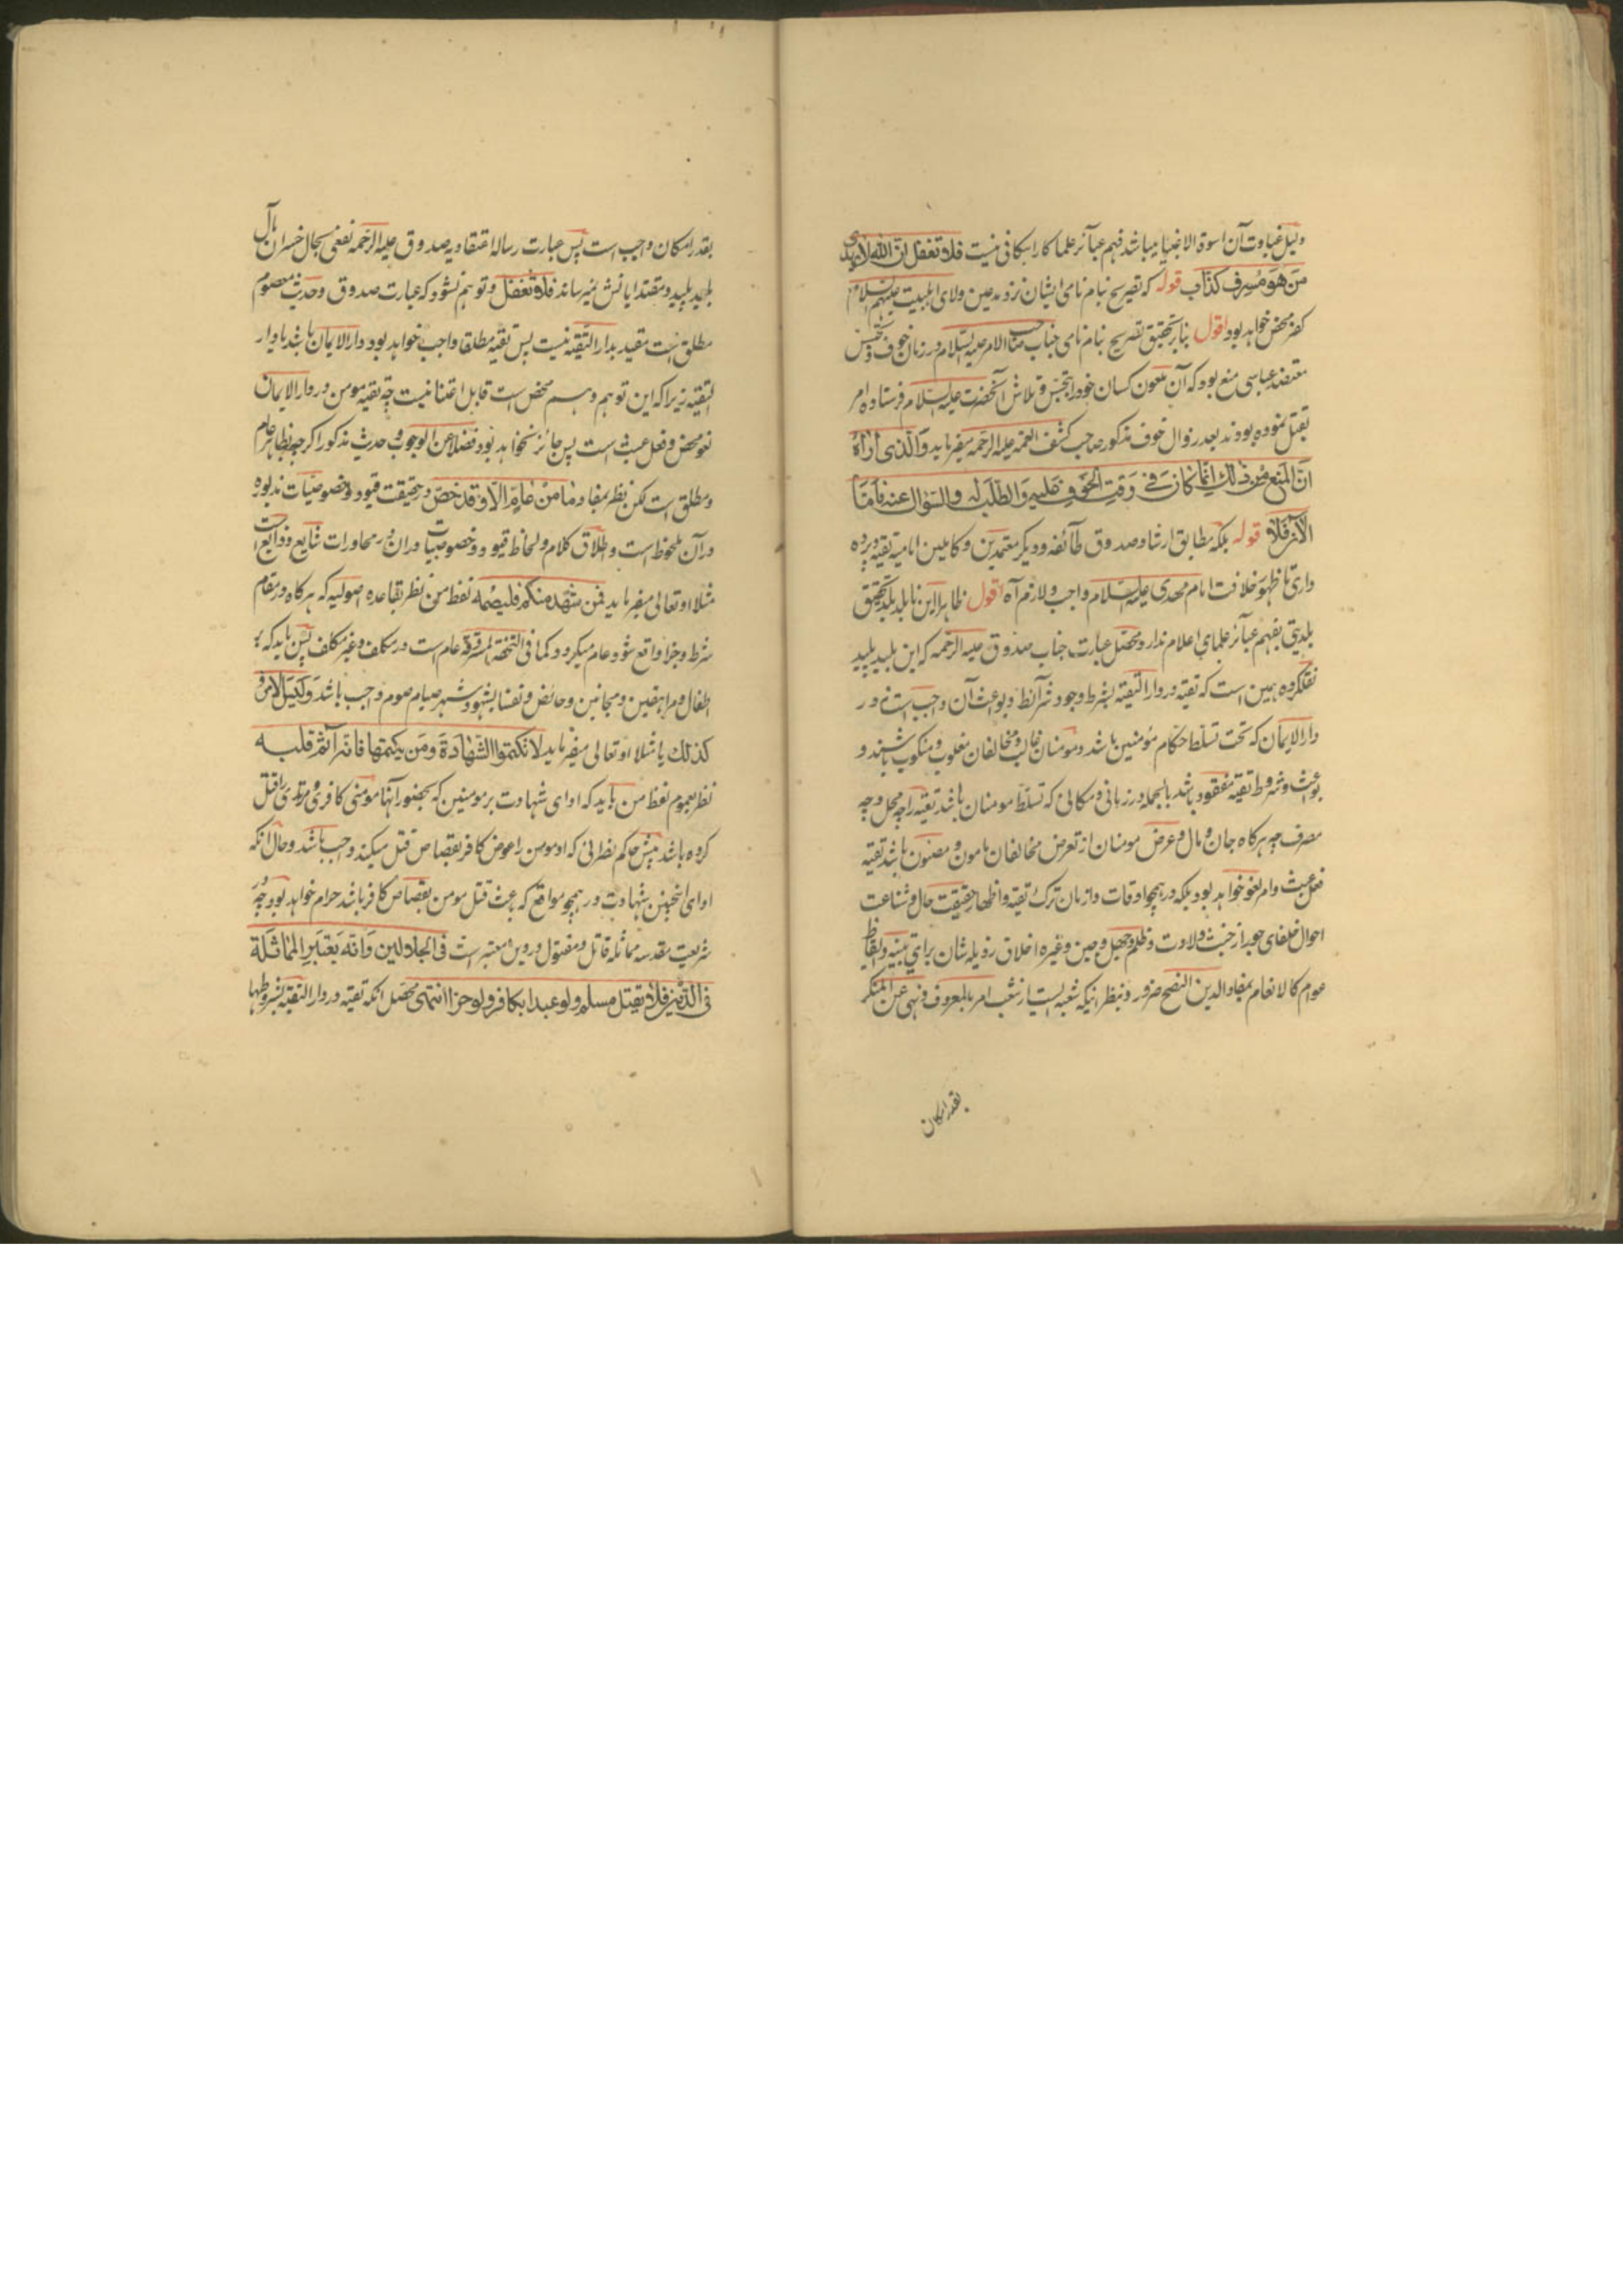 دلیل غباوت آن اسوة الاغبیا میباشد فهم عبائر علما کار ابکا فی نیست فلا تغفل ان الله لا یهدی
من هو مسرف کذاب قوله که تصریح بنام نامی ایشان نزد مدعین ولای اهلبیت علیهم السلام
کفر محض خواهد بود اقول بنابر تحقیق تصریح بنام نامی جناب صاحب الامر علیه السلام در زمان خوف و تجسس
معتضد عباسی منع بود که آن ملعون کسان خود را بتجسس و تلاش آنحضرت علیه السلام فرستاده امر
بقتل نموده بودند بعد زوال خوف مذکور صاحب کشف الغمه علیه الرحمه میفرماید والذی اراه
ان المنع من ذلک انما کان فی وقت الخوف علیه والطلب له والسؤال عنه فاما
الآن فلا قوله بلکه مطابق ارشاد صدوق طائفه و دیگر معتمدین و کاملین امامیه تقیه و پرده
داری تا ظهور خلافت امام مهدی علیه السلام واجب و لازم آه اقول ظاهرا این نابلد بلد تحقیق
بلدیتی بفهم عبائر علمای اعلام ندارد محصل عبارت جناب صدوق علیه الرحمه که این بلید پلید
نقل کرده همین است که تقیه در دار التقیه بشرط وجود شرائط و بواعث آن واجب است نه در
دار الایمان که تحت تسلط احکام مؤمنین باشد و مومنان غالب و مخالفان مغلوب و منکوب باشند و
بواعث و شروط تقیه مفقود باشد بالجمله در زمانی و مکانی که تسلط مومنان باشد تقیه را چه محل و چه
مصرف چه هرکاه جان و مال و عرض مومنان از تعرض مخالفان مامون و مصئون باشد تقیه
فعل عبث و امر لغو خواهد بود بلکه در همچو اوقات و ازمان ترک تقیه و اظهار حقیقت حال و شناعت
احوال خلفای جور از خبث ولادت و ظلم و جهل و جبن و غیره اخلاق رذیله شان برای تنبیه و ایقاظ
عوام کالانعام بمفاد الدین النصح ضرور و بنظر اینکه شعبه ایست از شعب امر بالمعروف و نهی عن المنکر
بقدر امکان
بقدر امکان واجب است پس عبارت رساله اعتقادیه صدوق علیه الرحمه نفعی بحال خسران مآل
بلید پلید و مقتدایانش نمیرساند فلا تغفل و توهم نشود که عبارت صدوق و حدیث معصوم
مطلق است مقید بدار التقیه نیست پس تقیه مطلقا واجب خواهد بود دار الایمان باشد یا دار
التقیه زیرا که این توهم وهم محض است قابل اعتنا نیست چه تقیه مومن در دار الایمان
لغو محض و فعل عبث است پس جائز نخواهد بود فضلا عن الوجوب و حدیث مذکور اکرچه بظاهر عام
و مطلق است لکن نظر بمفاد و ما من عام الا و قد خص در حقیقت قیود و خصوصیات مذبوره
در آن ملحوظ است و اطلاق کلام و لحاظ قیود و خصوصیات در ان در محاورات شایع و ذائع است
مثلا او تعالی میفرماید فمن شهد منکم فلیصمه لفظ من نظر بقاعده اصولیه که هرکاه در مقام
شرط و جزا واقع شود عام میکردد کما فی التحفة المسروقة عام است در مکلف و غیر مکلف پس باید که بر
اطفال و مراهقین و مجانین و حائض و نفسا بشهود شهر صیام صوم واجب باشد و لیس الامر
کذلک یا مثلا او تعالی میفرماید لا تکتموا الشهادة ومن یکتمها فانه آثم قلبه
نظر بعموم لفظ من باید که ادای شهادت بر مومنین که بحضور آنها مومنی کافری و مرتدی را قتل
کرده باشد پیش حاکم نصرانی که او مومن را عوض کافر بقصاص قتل میکند واجب باشد و حال انکه
ادای انچنین شهادت در همچو مواقع که باعث قتل مومن بقصاص کافر باشد حرام خواهد بود چه در
شریعت مقدسه مماثله قاتل و مقتول در دین معتبر است فی الجلالین وانه یعتبر المماثلة
فی الدین فلا یقتل مسلم ولو عبدا بکافر ولو حرا انتهی محصل انکه تقیه در دار التقیه بشروطها